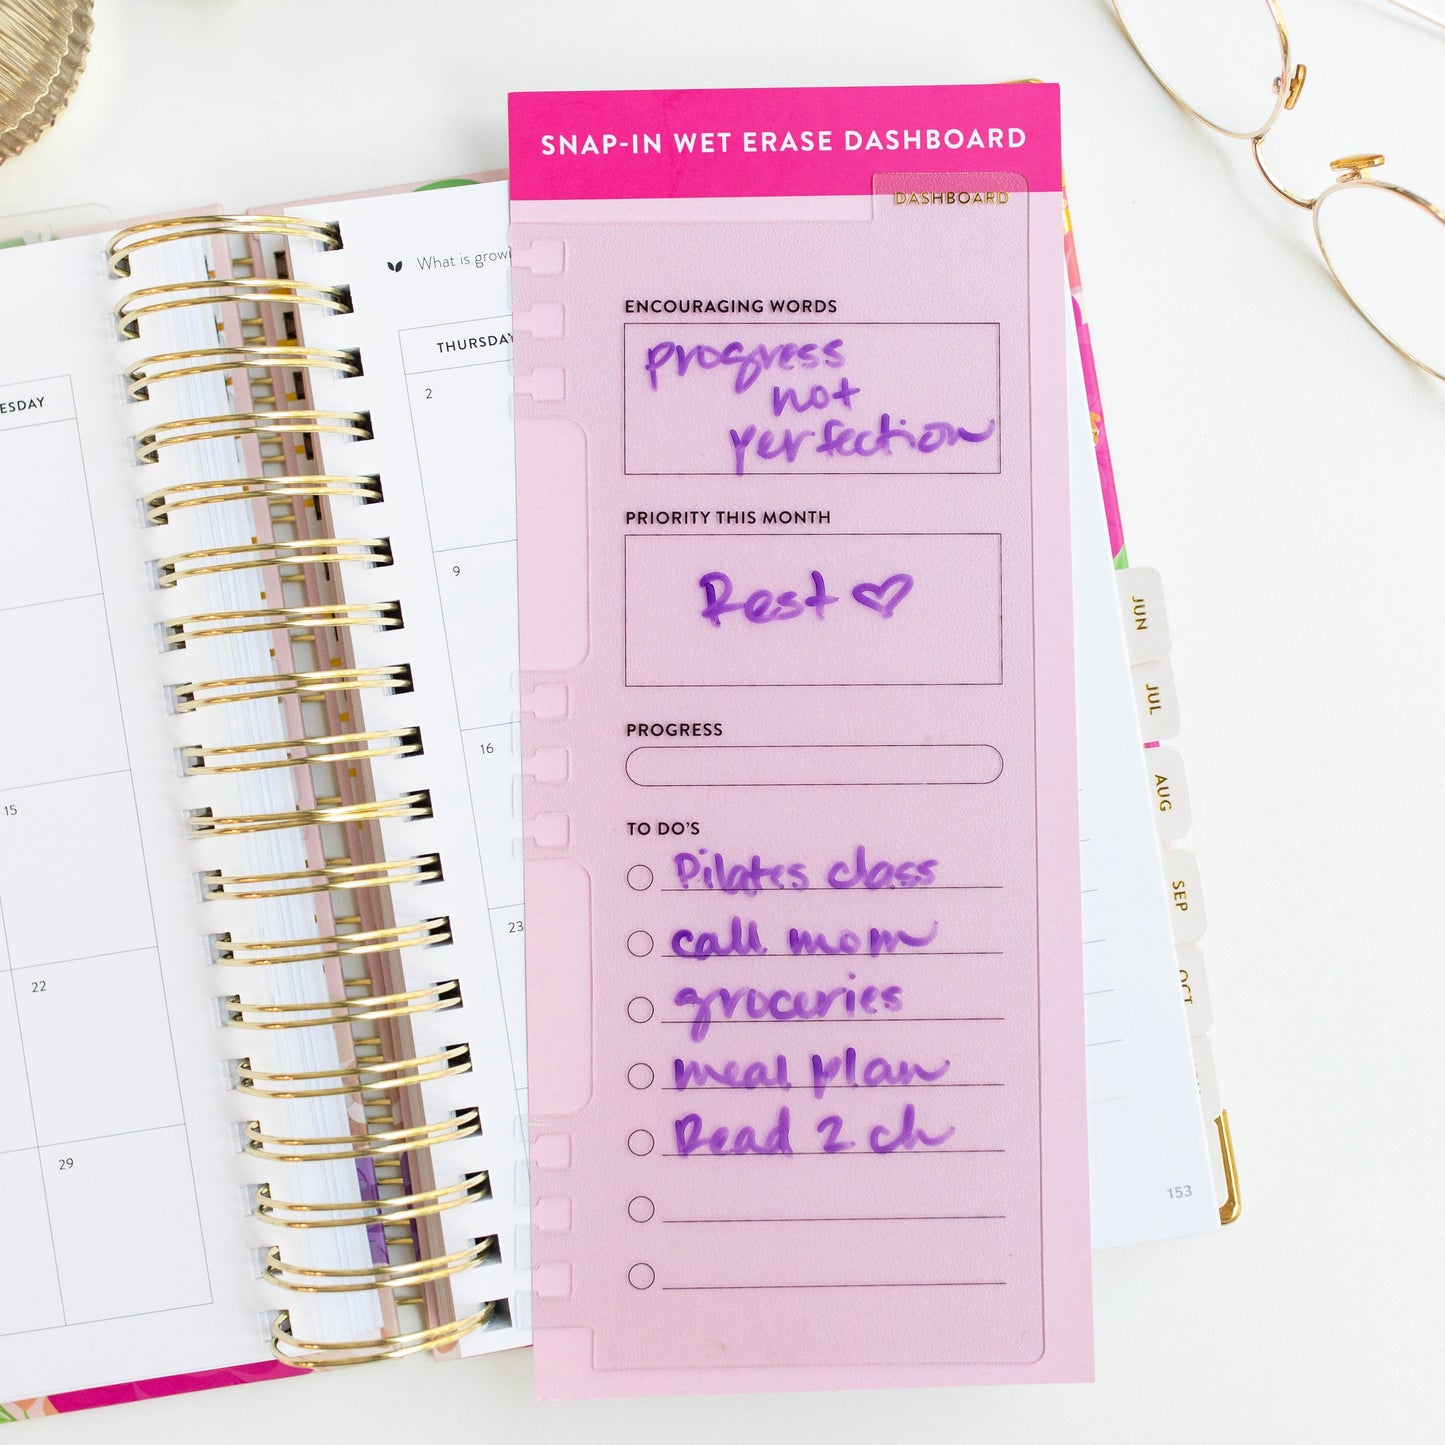 SNAP-IN WET ERASE DASHBOARD
DASHBOARD
ENCOURAGING WORDS
progress
not
perfection
PRIORITY THIS MONTH
Rest
PROGRESS
TO DO'S
Pilates class
call mom
groceries
meal plan
Read 2 ch
What is
THURSDAY
2
9
16
23
15
22
29
JUN
JUL
AUG
SEP
OCT
153